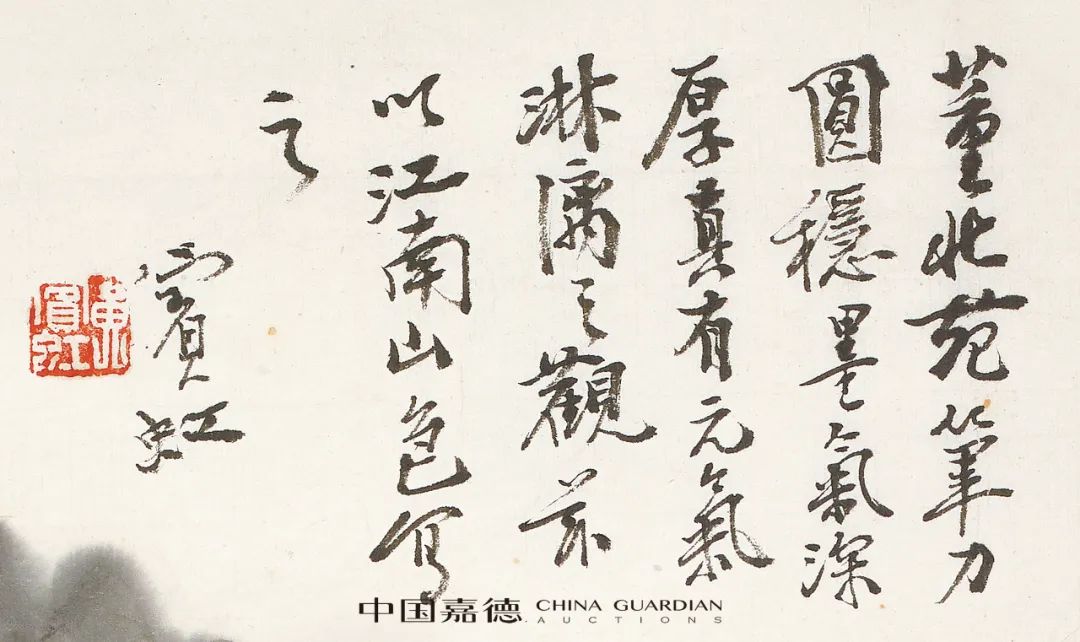 董北苑筆力
圓穩墨氣深
厚真有元氣
淋漓之觀茲
以江南山色寫
之
賓虹
黃賓虹
中国嘉德 CHINA GUARDIAN
AUCTIONS